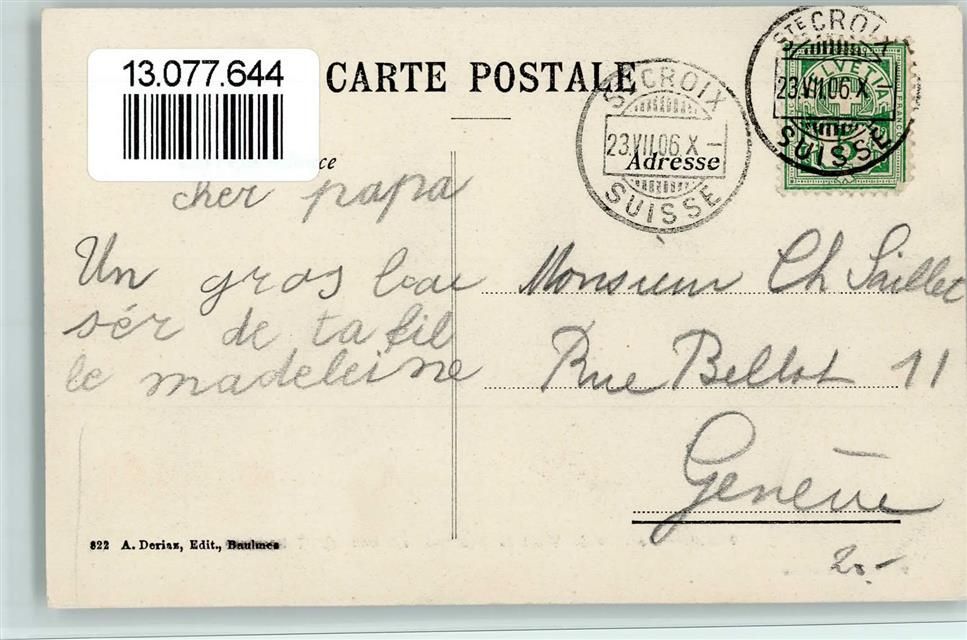 13.077.644
CARTE POSTALE
STE CROIX
23.VII.06.X-
SUISSE
STE CROIX
23.VII.06.X-
SUISSE
HELVETIA
FRANCO
5
ce
Adresse
cher papa
Un gros bai
sér de ta fil
le madeleine
Monsieur Ch Saillet
Rue Bellot 11
Genève
822 A. Deriaz, Edit., Baulmes
20.-